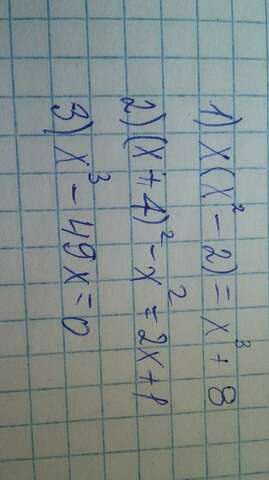 1) x(x²-2)=x³+8
2) (x+4)²-x²=2x+1
3) x³-49x=0